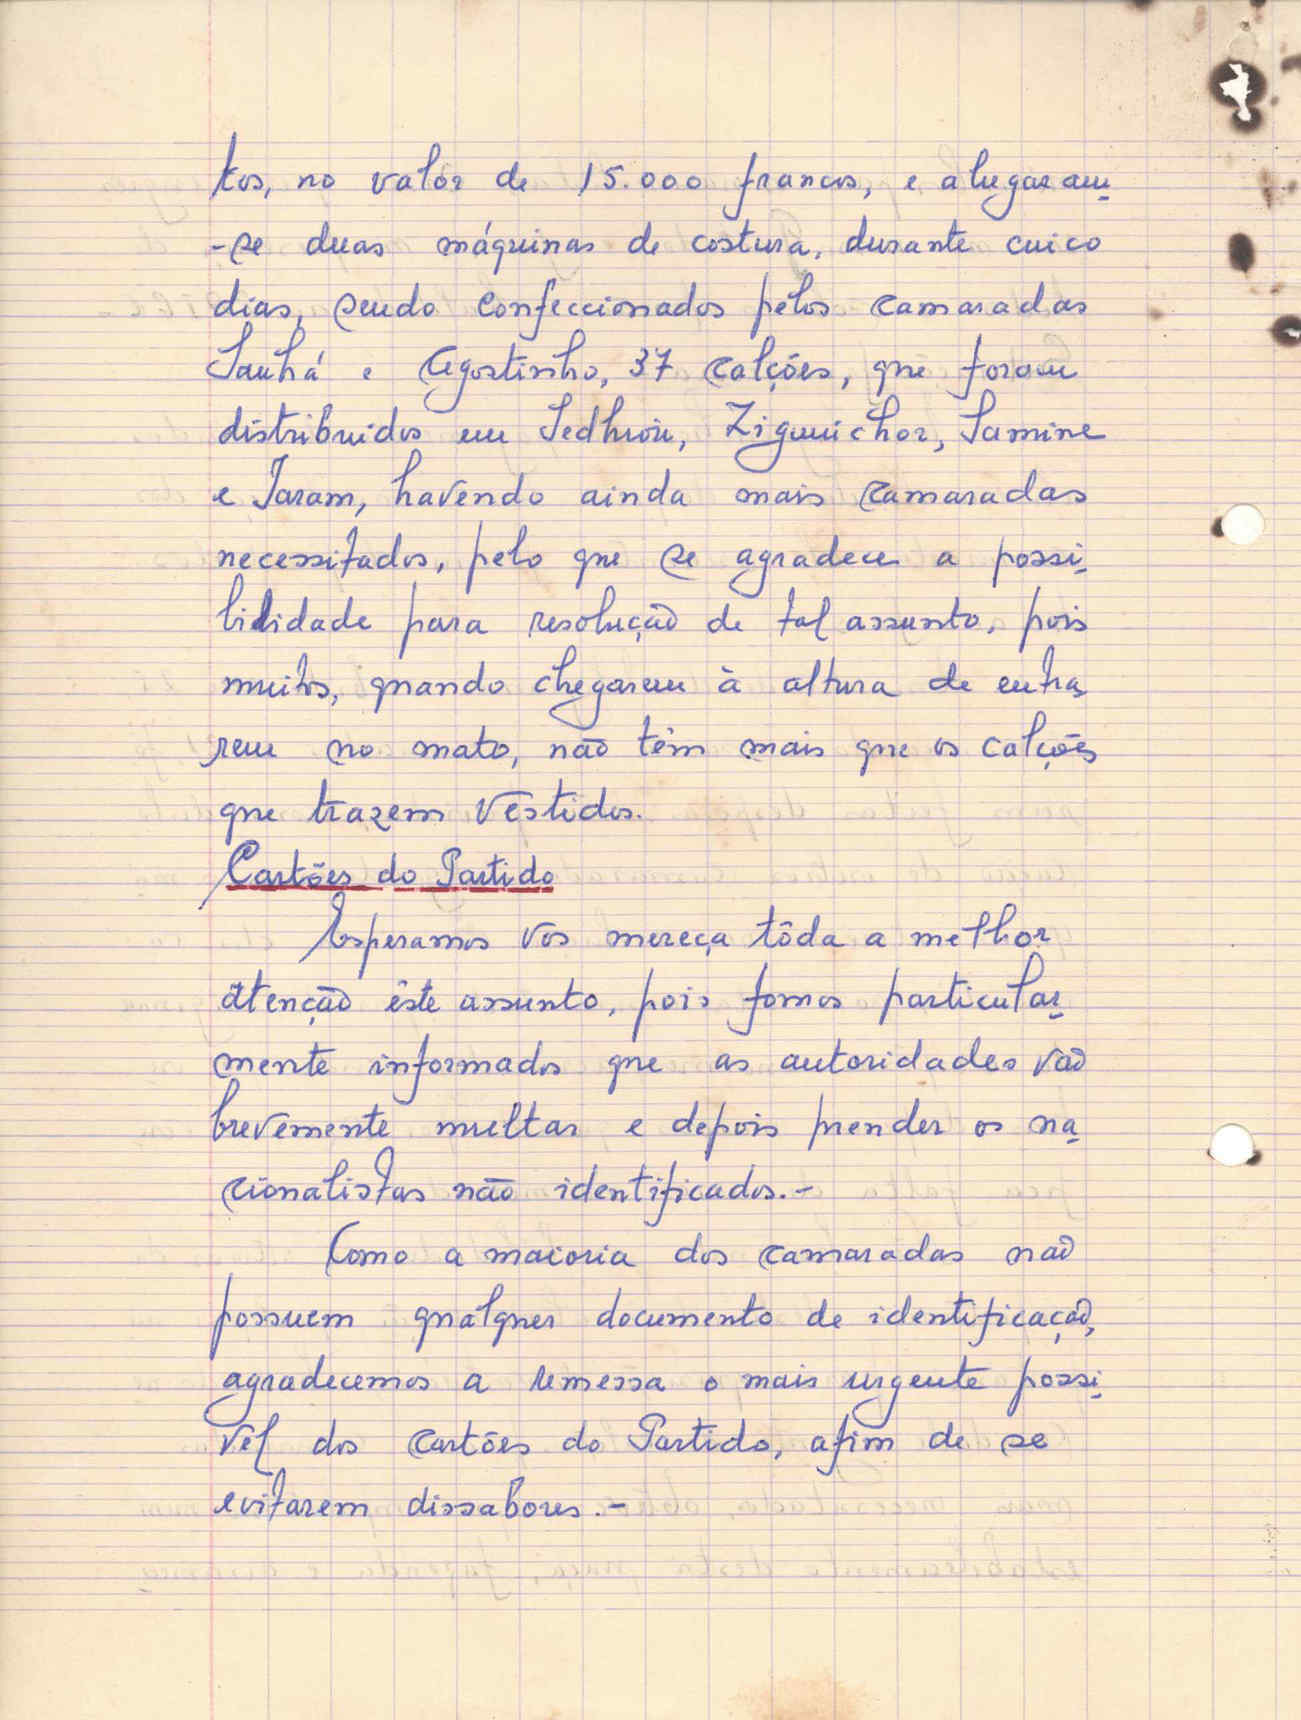 tos, no valôr de 15.000 francos, e alugaram
-se duas máquinas de costura, durante cinco
dias, sendo confeccionados pelos camaradas
Sanhá e Agostinho, 37 calções, que foram
distribuidos em Sedhiou, Ziguichor, Samine
e Jaram, havendo ainda mais camaradas
necessitados, pelo que se agradece a possi-
bilidade para resolução de tal assunto, pois
muitos, quando chegarem à altura de entra-
rem no mato, não têm mais que os calções
que trazem vestidos.
Cartões do Partido
Esperamos vos mereça tôda a melhor
atenção êste assunto, pois fomos particular-
mente informados que as autoridades vão
brevemente multar e depois prender os na-
cionalistas não identificados.-
Como a maioria dos camaradas não
possuem qualquer documento de identificação,
agradecemos a remessa o mais urgente possi-
vel dos cartões do Partido, afim de se
evitarem dissabores.-